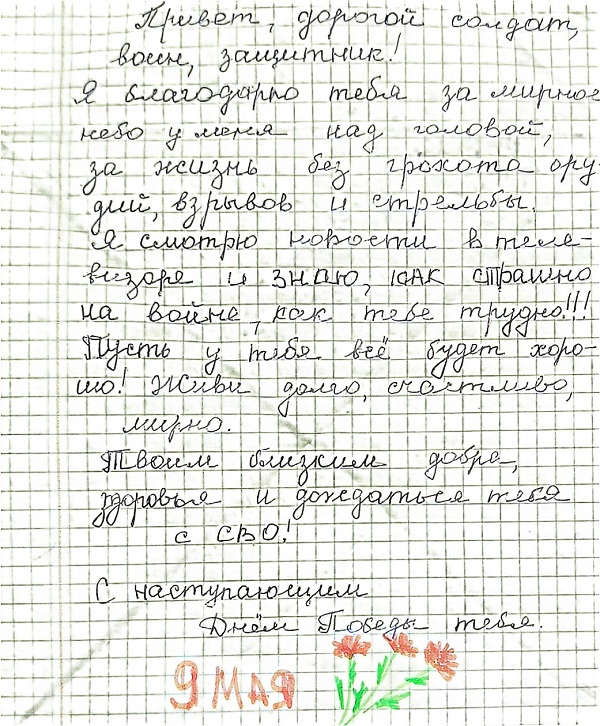 Привет, дорогой солдат,
воин, защитник!
Я благодарю тебя за мирное
небо у меня над головой,
за жизнь без грохота ору-
дий, взрывов и стрельбы.
Я смотрю новости в теле-
визоре и знаю, как страшно
на войне, как тебе трудно!!!
Пусть у тебя всё будет хоро-
шо! Живи долго, счастливо,
мирно.
Твоим близким добра,
здоровья и дождаться тебя
с СВО!
С наступающим
Днём Победы тебя.
9 МАЯ